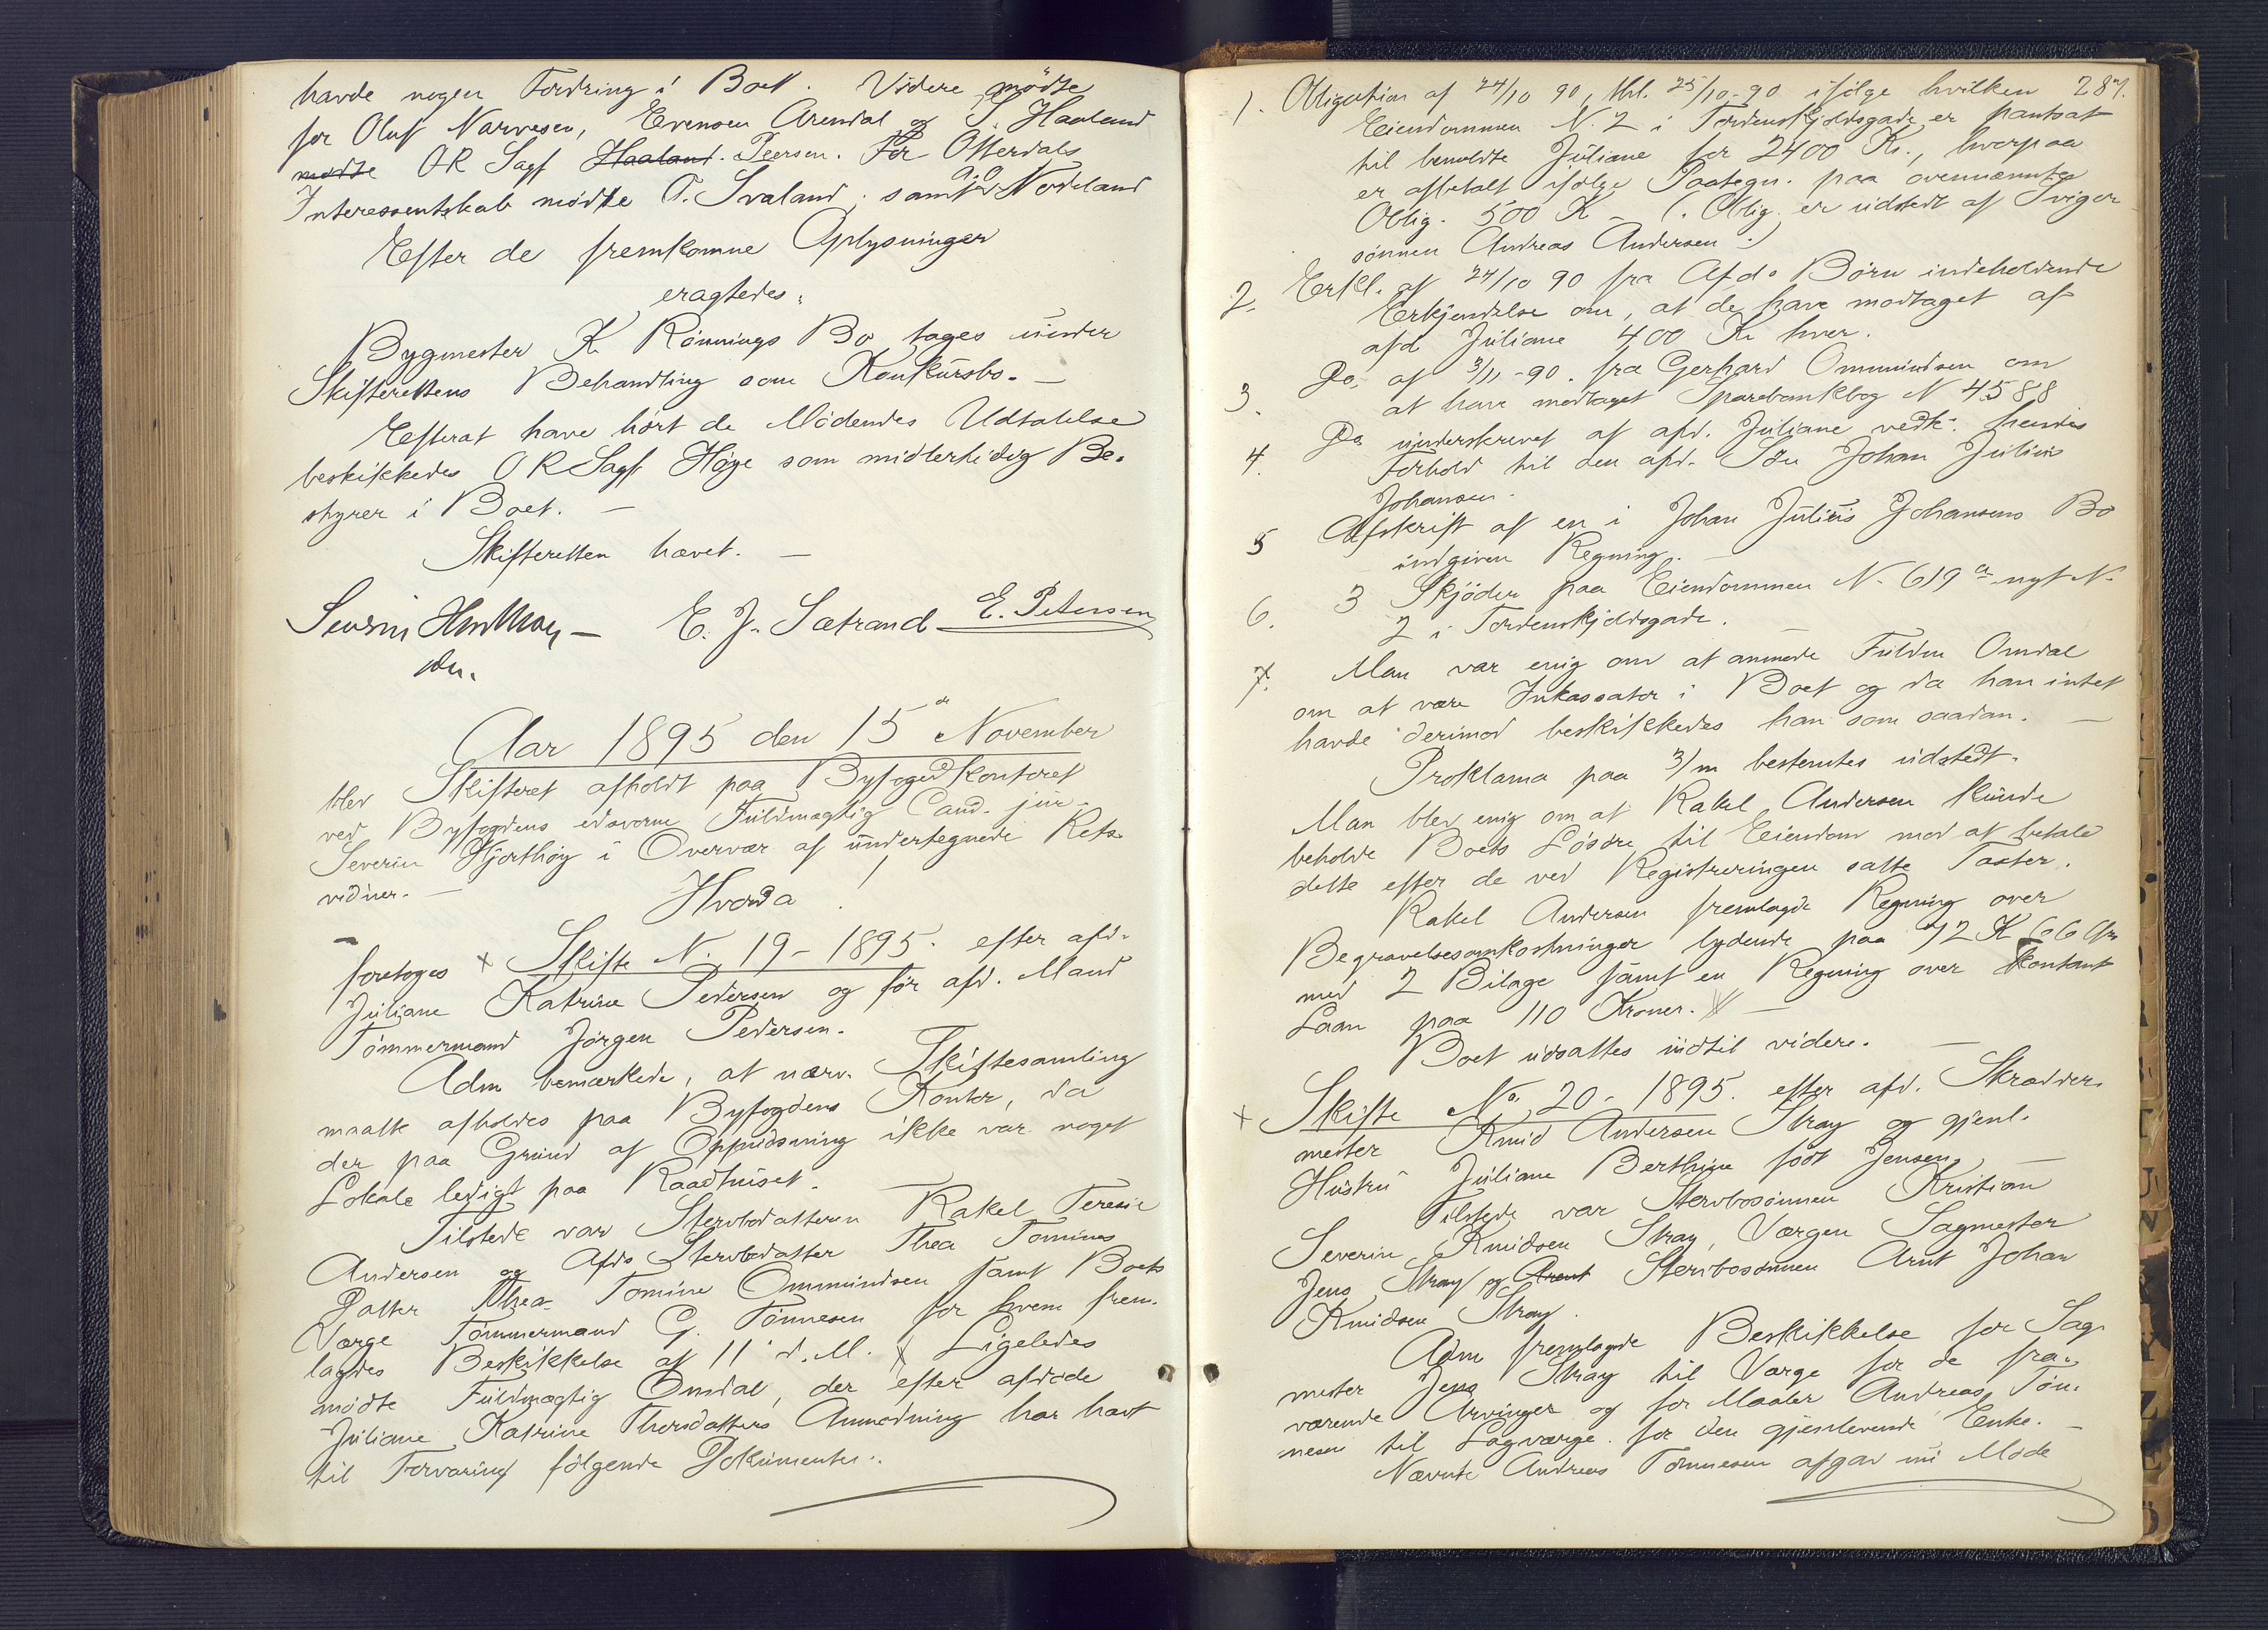 havde nogen Fordring i Boet. Videre mødte
for Oluf Narvesen, Evensen Arendal og S. Haaland
mødte OR Sagf Haaland. Peersen. For Otterdals
Interessentskab mødte T. Svaland; samt Nordeland
Efter de fremkomne Oplysninger
eragtedes:
Bygmester K. Rönnings Bo tages under
Skifterettens Behandling som Konkursbo. —
Efterat have hørt de Mødendes Udtalelse
beskikkedes OR Sagf Høye som midlertidig Be-
styrer i Boet. —
Skifteretten hævet. —
E. J. Sætrand E. Petersen
Aar 1895 den 15de November
blev Skifteret afholdt paa Byfogedkontoret
ved Byfogdens edsvorne Fuldmægtig Cand. jur.
Severin Hjorthøy i Overvær af undertegnede Rets-
vidner. —
Hvorda !
foretoges × Skifte N. 19 - 1895. efter afd.
Juliane Katrine Pedersen og før afd. Mand
Tømmermand Jørgen Pedersen.
Adm bemærkede, at nærv. Skiftesamling
maatte afholdes paa Byfogdens Kontor, da
der paa Grund af Oppudsning ikke var noget
Lokale ledigt paa Raadhuset. —
Tilstede var Stervbodatteren Rakel Teresie
Andersen og Afds Stervbodatter Thea Tomines
Datter Thea Tomine Ommundsen samt Boets
Værge Tømmermand G. Tønnesen for hvem frem-
lagdes Beskikkelse af 11 d. M. Ligeledes
mødte Fuldmægtig Omdal, der efter afdøde
Juliane Katrine Thorsdatters Anmodning har havt
til Forvaring følgende Dokumenter:
287.
1. Obligation af 24/10 90, thl. 25/10-90 ifølge hvilken
Eiendommen N. 2 i Tordenskjoldsgade er pantsat
til bemeldte Juliane for 2400 Kr., hvorpaa
er afbetalt ifølge Paategn. paa ovennævnte
Oblig. 500 K — (. Oblig. er udstedt af Sviger
sønnen Andreas Andersen .)
2. Erkl. af 24/10 90 fra Afd. Børn indeholdende
Erkjendelse om, at de have modtaget af
afd Juliane 400 Kr hver.
3. Do. af 3/11-90. fra Gerhard Ommundsen om
at have modtaget Sparebankbog N 4588
4. Do underskrevet af afd. Juliane vedk. hendes
Forhold til den afd. Søn Johan Julius
Johansen.
5 Afskrift af en i Johan Julius Johansens Bo
indgiven Regning. —
6. 3 Skjøder paa Eiendommen N. 619 a nyt N.
2 i Tordenskjoldsgade. —
7. Man var enig om at anmode Fuldm Omdal
om at være Inkassator i Boet og da han intet
havde derimod beskikkedes han som saadan. —
Proklama paa 3/m bestemtes udstedt.
Man blev enig om at Rakel Andersen kunde
beholde Boets Løsøre til Eiendom mod at betale
dette efter de ved Registreringen satte Taxter.
Rakel Andersen fremlagde Regning over
Begravelsesomkostninger lydende paa 72 K 66 Øre
med 2 Bilage samt en Regning over Kontant
Laan paa 110 Kroner. —
Boet udsattes indtil videre. —
× Skifte No. 20 - 1895. efter afd. Skrædder-
mester Knud Andersen Stray og gjenl.
Hustru Juliane Berthine født Jensen. —
Tilstede var Stervbosønnen Kristian
Severin Knudsen Stray, Værgen Sagmester
Jens Stray og Arent Stervbosønnen Arnt Johan
Knudsen Stray.
Adm fremlagde Beskikkelse for Sag-
mester Jens Stray til Værge for de fra-
værende Arvinger og for Maaler Andreas Tøn-
nesen til Lagværge for den gjenlevende Enke. —
Nævnte Andreas Tønnesen afgav nu Møde